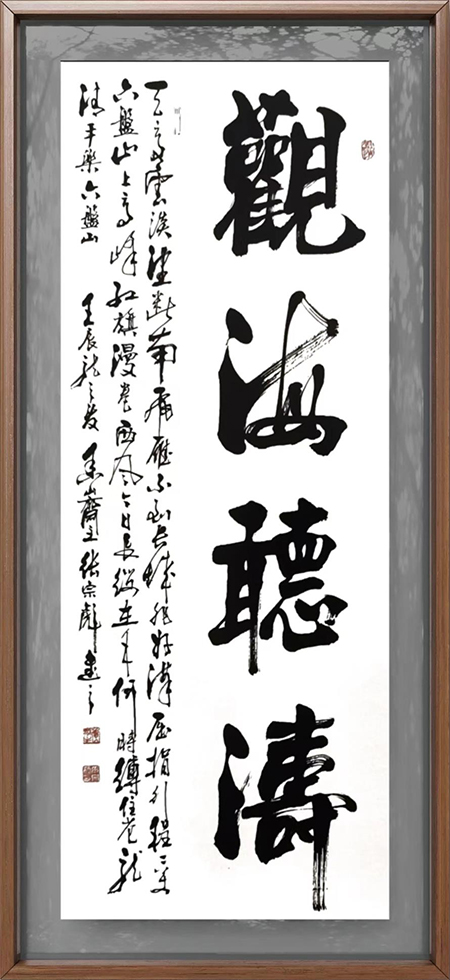 觀海聽濤
天高雲淡望斷南飛雁不到長城非好漢屈指行程二萬
六盤山上高峰紅旗漫卷西風今日長纓在手何時縛住蒼龍
清平樂六盤山 壬辰龍之歲 齋主張宗彪書之